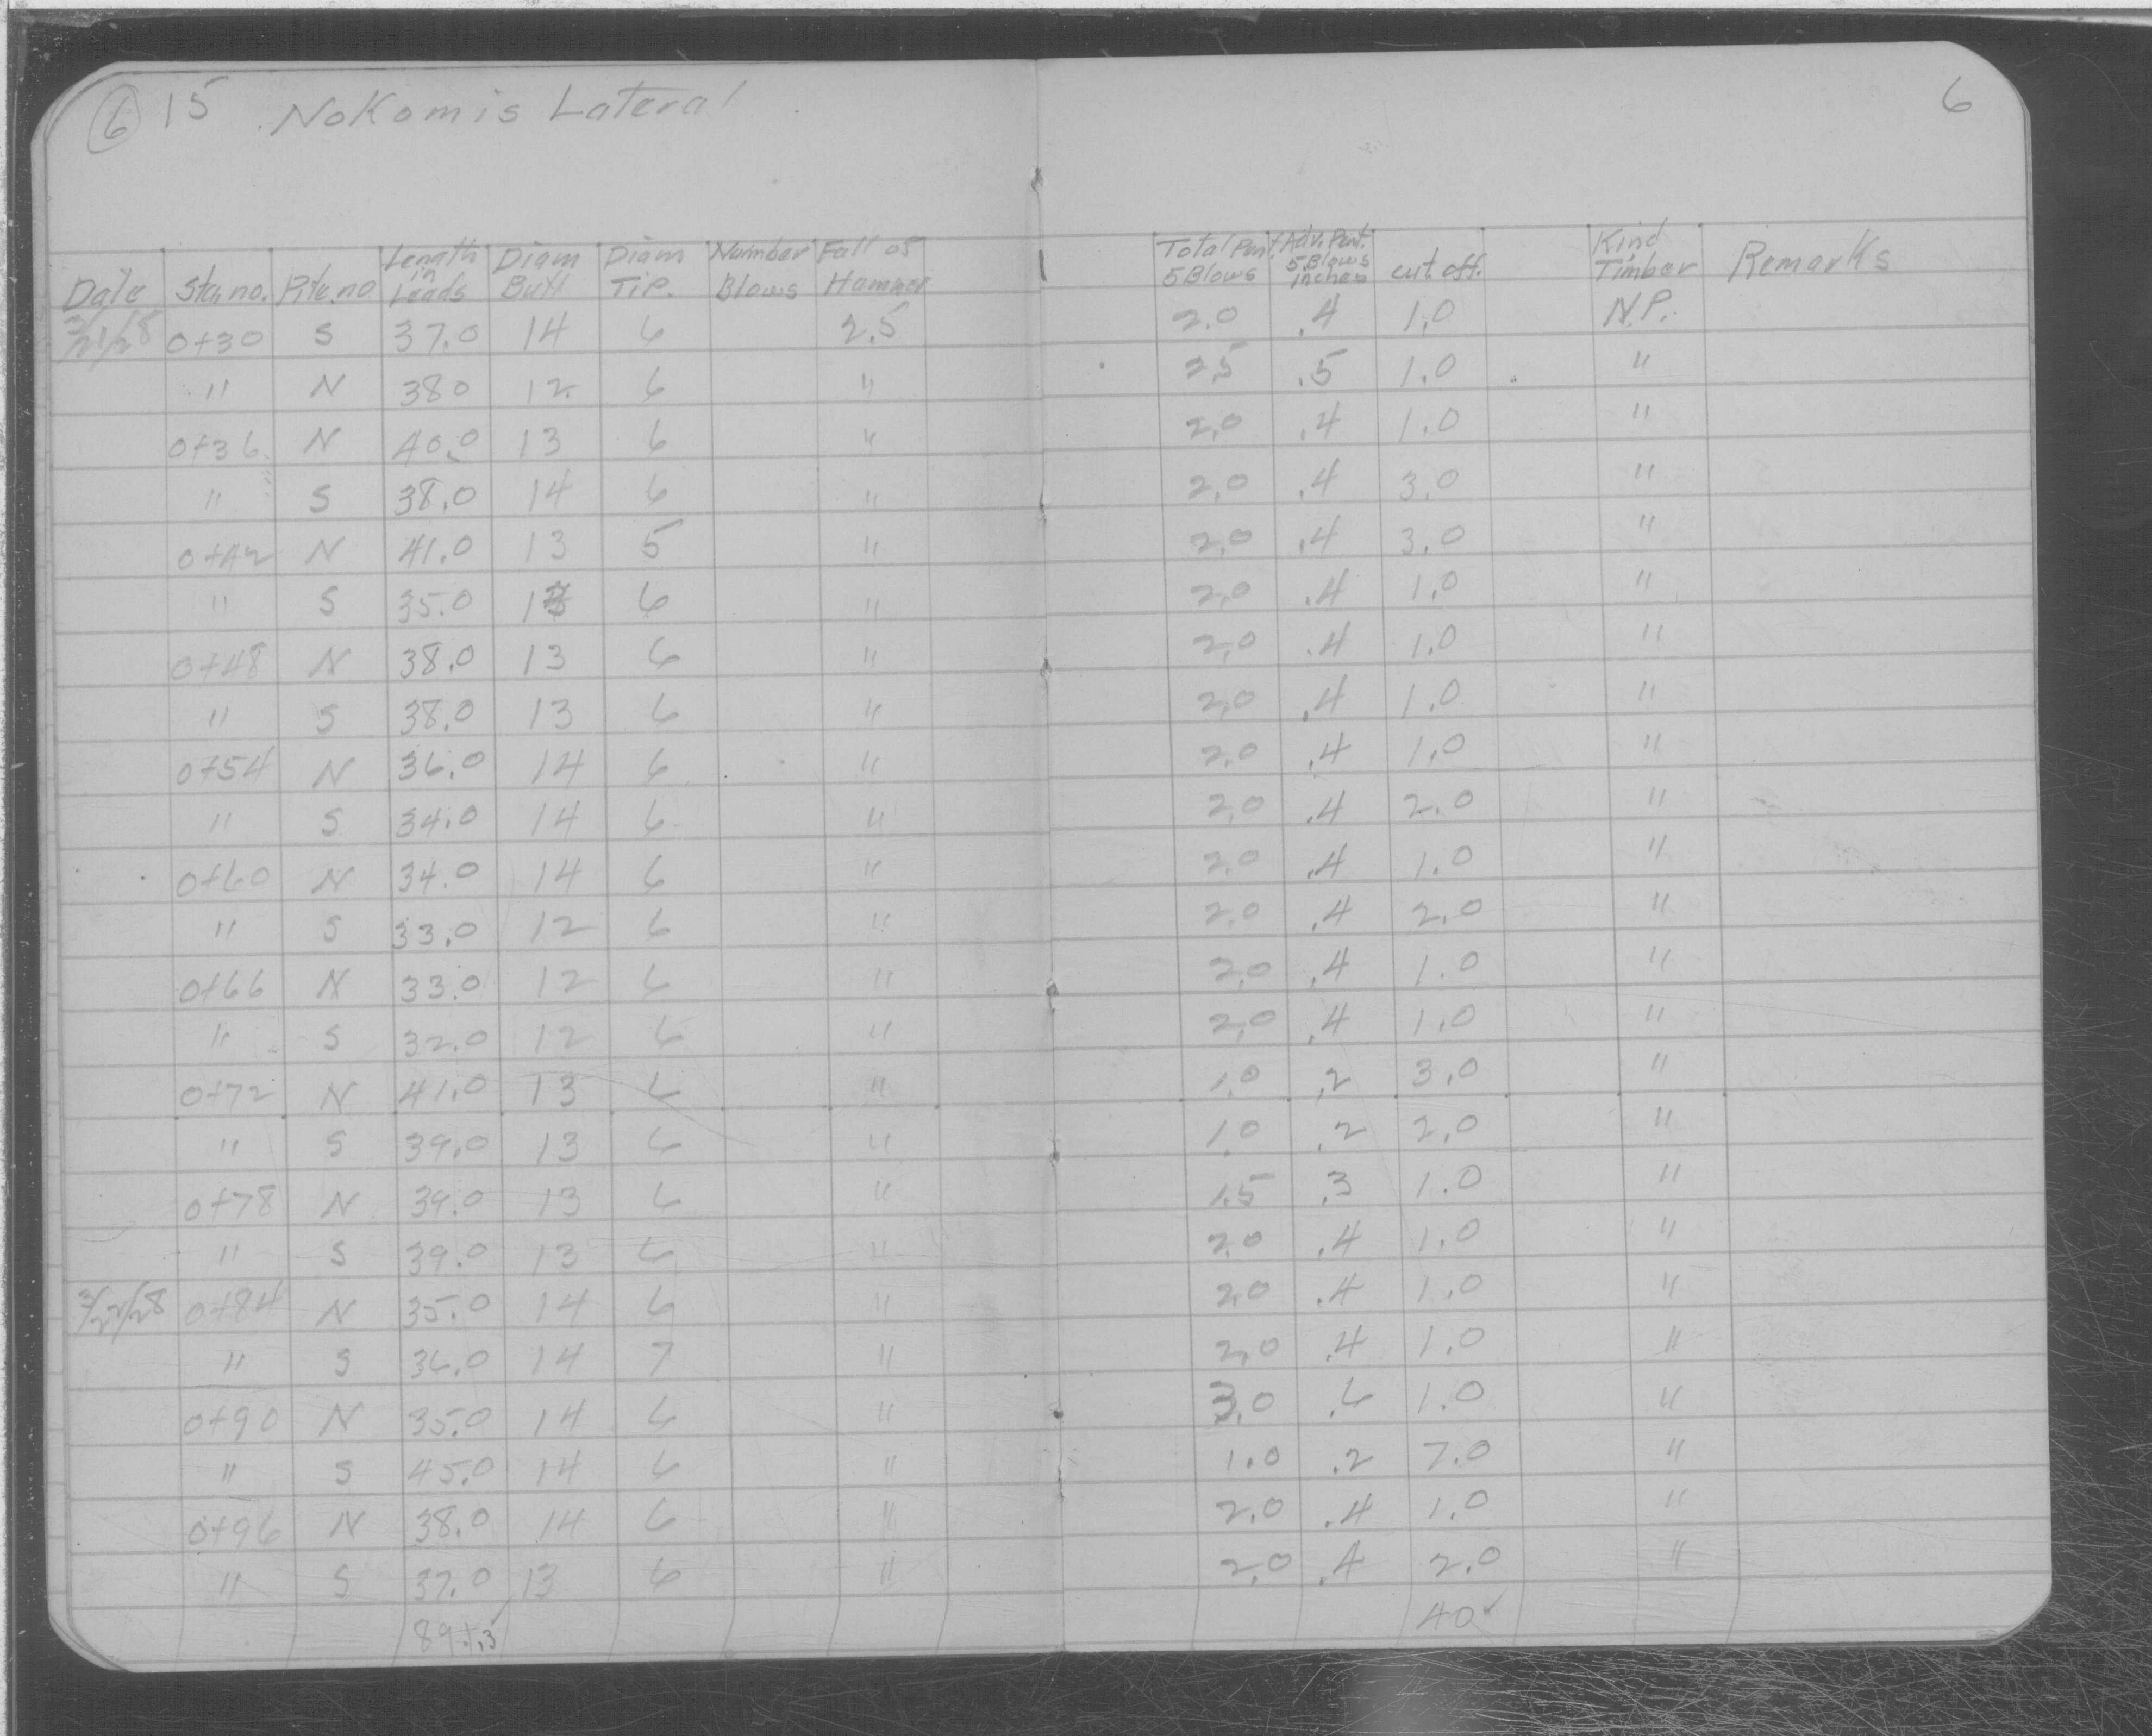 6 15 Nokomis Lateral 6
Date Sta. no. Pile no. Length in Leads Diam Butt Diam Tip. Number Blows Fall of Hammer Total Pent. 5 Blows Adv. Pent. 5 Blows inches cut off. Kind Timber Remarks
3/21/28 0+30 S 37.0 14 6 2.5 2.0 .4 1.0 N.P.
" N 38.0 12 6 " 2.5 .5 1.0 "
0+36 N 40.0 13 6 " 2.0 .4 1.0 "
" S 38.0 14 6 " 2.0 .4 3.0 "
0+42 N 41.0 13 5 " 2.0 .4 3.0 "
" S 35.0 13 6 " 2.0 .4 1.0 "
0+48 N 38.0 13 6 " 2.0 .4 1.0 "
" S 38.0 13 6 " 2.0 .4 1.0 "
0+54 N 36.0 14 6 " 2.0 .4 1.0 "
" S 34.0 14 6 " 2.0 .4 2.0 "
0+60 N 34.0 14 6 " 2.0 .4 1.0 "
" S 33.0 12 6 " 2.0 .4 2.0 "
0+66 N 33.0 12 6 " 2.0 .4 1.0 "
" S 32.0 12 6 " 2.0 .4 1.0 "
0+72 N 41.0 13 6 " 1.0 .2 3.0 "
" S 39.0 13 6 " 1.0 .2 2.0 "
0+78 N 39.0 13 6 " 1.5 .3 1.0 "
" S 39.0 13 6 " 2.0 .4 1.0 "
3/22/28 0+84 N 35.0 14 6 " 2.0 .4 1.0 "
" S 36.0 14 7 " 2.0 .4 1.0 "
0+90 N 35.0 14 6 " 3.0 .6 1.0 "
" S 45.0 14 6 " 1.0 .2 7.0 "
0+96 N 38.0 14 6 " 2.0 .4 1.0 "
" S 37.0 13 6 " 2.0 .4 2.0 "
40 ✓